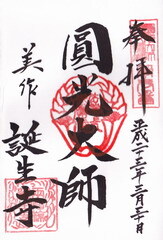 奉拝
平成二十三年三月二十日
圓光大師
美作
誕生寺